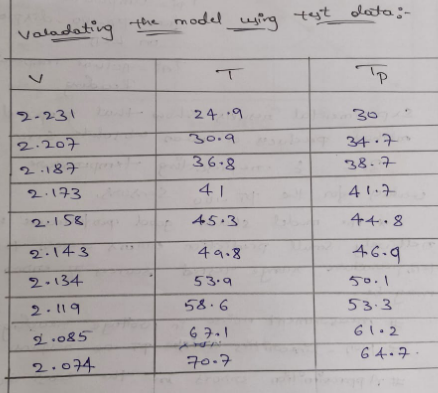 Valadating the model using test data:-
V T Tp
2.231 24.9 30
2.207 30.9 34.7
2.187 36.8 38.7
2.173 41 41.7
2.158 45.3 44.8
2.143 49.8 46.9
2.134 53.9 50.1
2.119 58.6 53.3
2.085 67.1 61.2
2.074 70.7 64.7